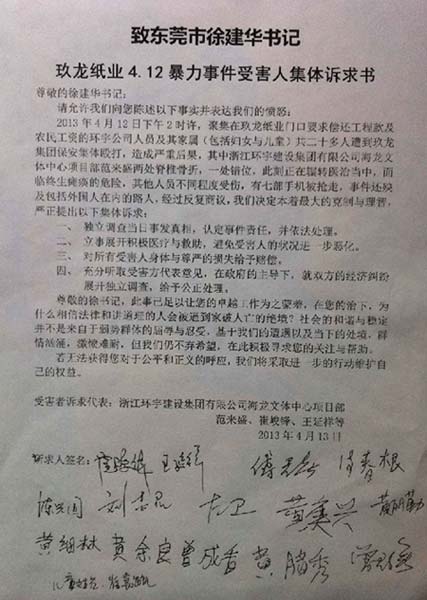 致东莞市徐建华书记
玖龙纸业4.12暴力事件受害人集体诉求书
尊敬的徐建华书记：
请允许我们向您陈述以下事实并表达我们的愤怒：
2013年4月12日下午2时许，聚集在玖龙纸业门口要求偿还工程款及
农民工资的环宇公司人员及其家属（包括妇女与儿童）共二十多人遭到玖龙
集团保安集体殴打，造成严重后果，其中浙江环宇建设集团有限公司海龙文体
中心项目部范米盛两处脊椎骨折，一处错位，此刻正在辗转医治当中，面
临终生瘫痪的危险，其他人员不同程度受伤，有七部手机被抢走，事件还殃
及包括外国人在内的路人，经过反复商议，我们决定本着最大的克制与理智，
严正提出以下集体诉求：
一、 独立调查当日事发真相，认定事件责任，并依法处理。
二、 立事展开积极医疗与救助，避免受害人的状况进一步恶化。
三、 对所有受害人身体与尊严的损失给予赔偿。
四、 充分听取受害方代表意见，在政府的主导下，就双方的经济纠纷
展开独立调查，给予公正处理。
尊敬的徐书记，此事已足以让您的卓越工作为之蒙羞，在您的治下，为
什么相信法律和讲道理的人会被逼到家破人亡的绝境？社会的和谐与稳定
并不是来自于弱势群体的屈辱与忍受，基于我们的遭遇以及当下的处境，群
情汹涌，激愤难耐，但我们仍不弃希望，在此积极寻求您的关注与帮助。
若无法获得您对于公平和正义的呼应，我们将采取进一步的行动维护自
己的权益。
受害者诉求代表：浙江环宇建设集团有限公司海龙文体中心项目部
范米盛、崔峻锋、王延祥等
2013年4月13日
诉求人签名：
刘志昆 黄美兴
黄细林 黄余良 曾成香 黄腊秀